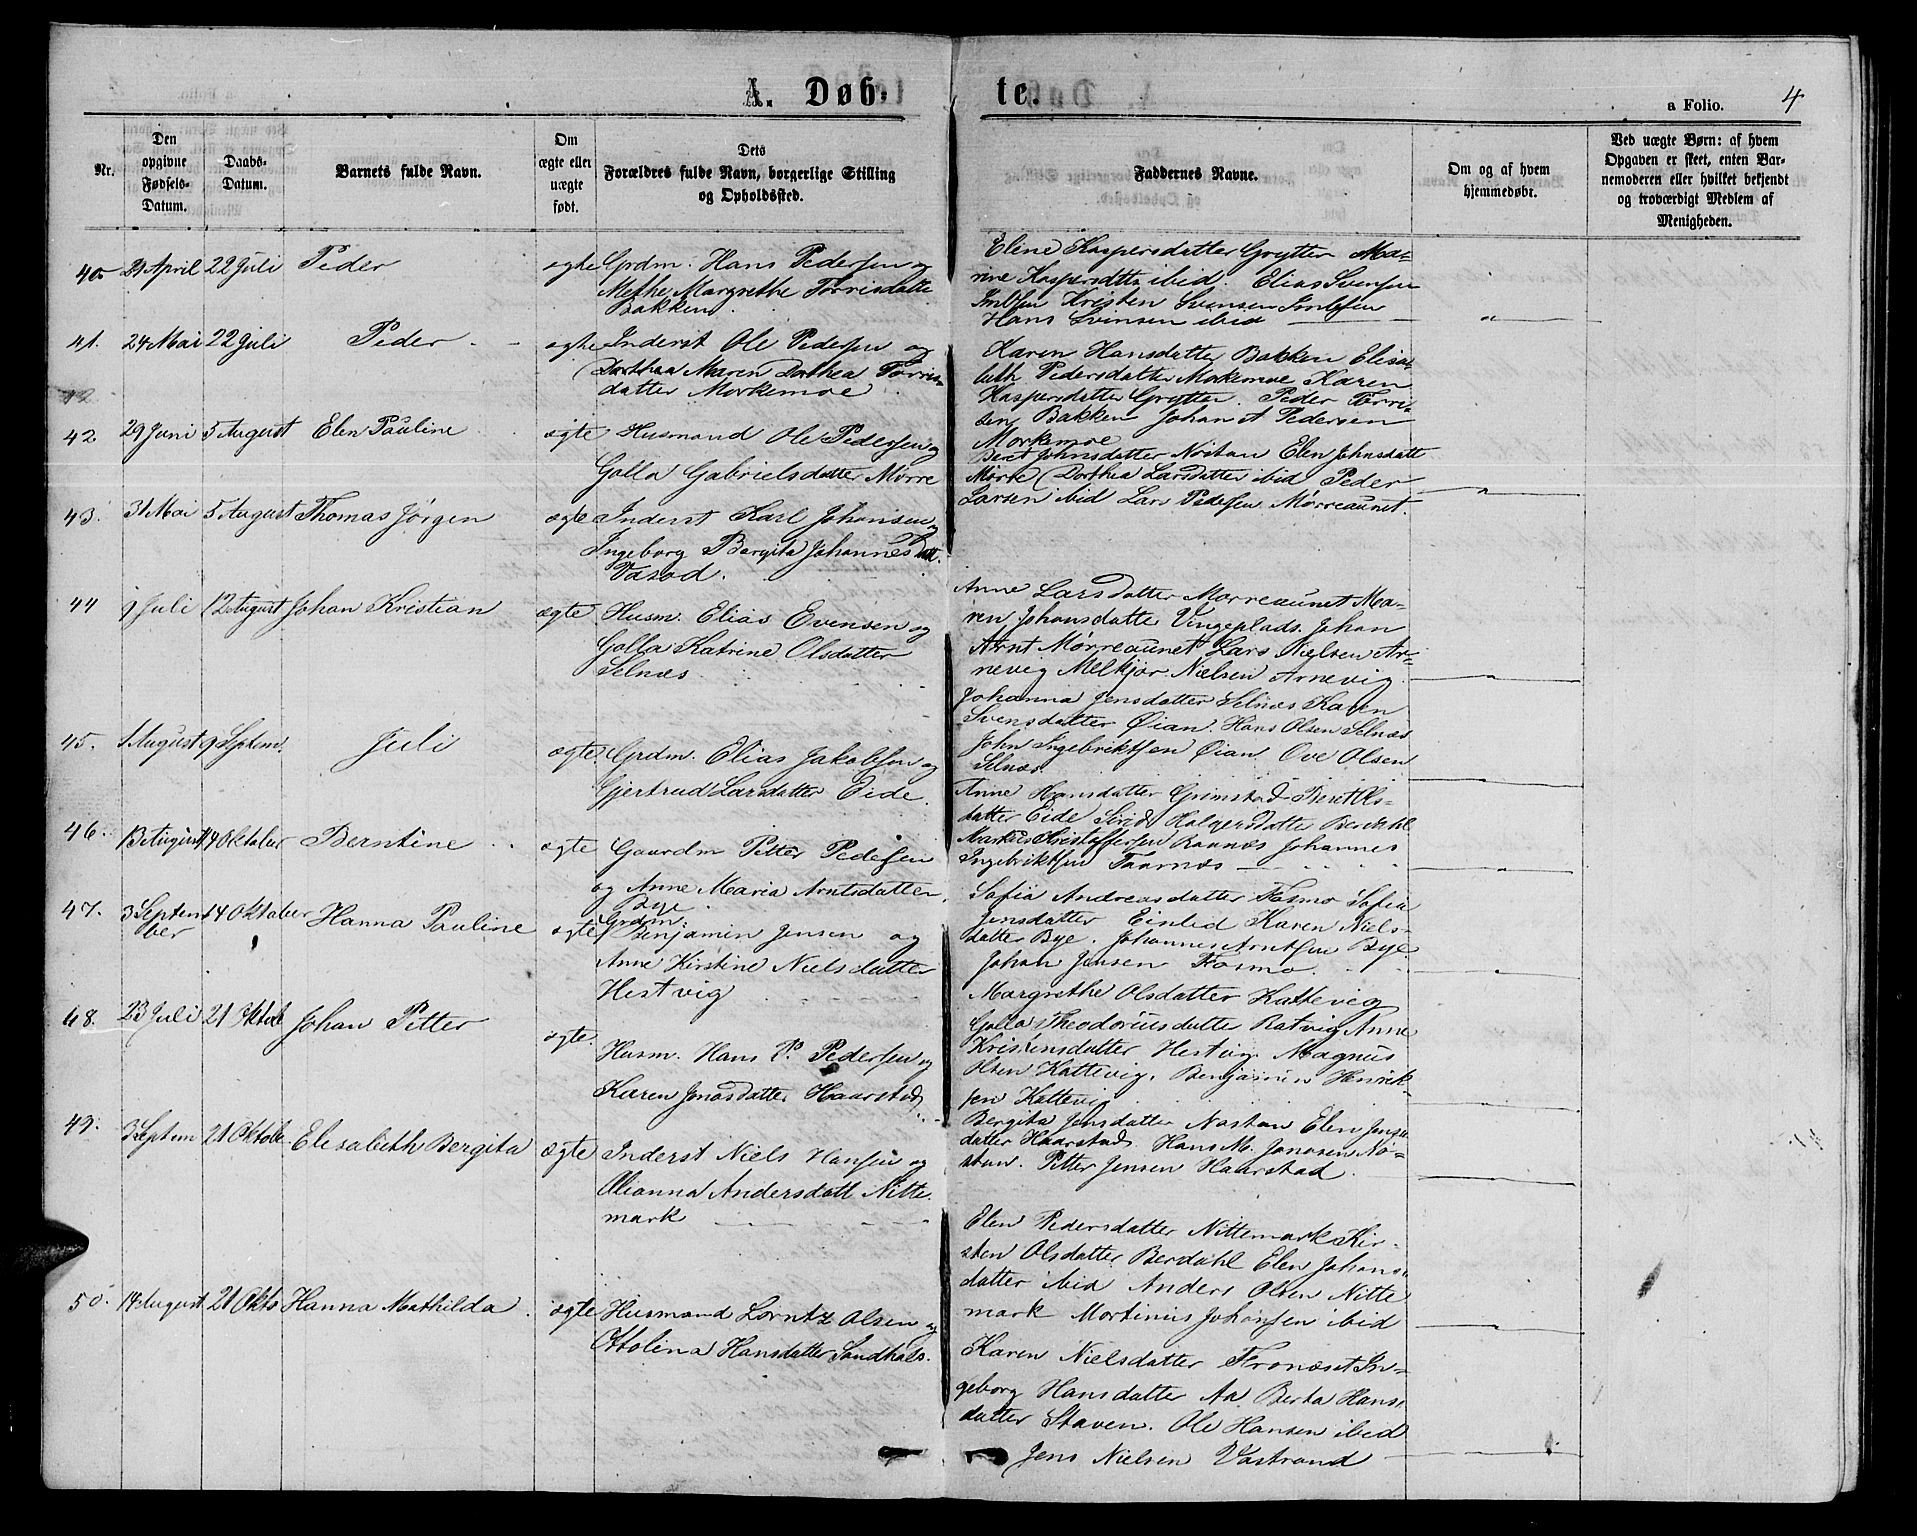 A. Døbte.
a Folio. 4
Nr.
Den opgivne Fødsels-Datum.
Daabs-Datum.
Barnets fulde Navn.
Om ægte eller uægte født.
Dets Forældres fulde Navn, borgerlige Stilling og Opholdssted.
Faddernes Navne.
Om og af hvem hjemmedøbt.
Ved uægte Børn: af hvem Opgaven er skeet, enten Barnemoderen eller hvilket bekjendt og troværdigt Medlem af Menigheden.
40 21 April 22 Juli Peder ægte Grdm. Hans Pedersen og
Methe Margrethe Torrisdatte
Bakken.
Eline Kaspersdatter Grytter Ma-
rine Kaspersdtte ibid. Elias Svensen
Kristen Svensen
Hans Svinsen ibid
41. 24 Mai 22 Juli Peder ægte Inderst Ole Pedersen og
Maren Dorthea Torris-
datter Morkemoe
Karen Hansdatter Bakken Elisa-
beth Pedersdatter Morkemoe Karen
Kaspersdatter Grytter. Peder Torri-
sen Bakken Johan A Pedersen
Morkemoe
42 29 Juni 5 August Elen Pauline ægte Husmand Ole Pedersen og
Golla Gabrielsdatter Mørre
Beret Johnsdatter Nøstan Elen Johnsdatt
Mørke Dorthea Larsdatter ibid Peder
Larsen ibid Lars Pedersen Mørreaunet.
43. 31 Mai 5 August Thomas Jørgen ægte Inderst Karl Johansen og
Ingeborg Bergita Johannesdatt.
Vasød.
44 9 Juli 12 August Johan Kristian ægte Husm. Elias Evensen og
Golla Katrine Olsdatter
Selnæs
Anne Larsdatter Morreaunet Ma-
ren Johansdatte Vingeplads. Johan
Arnt Mørreaunet Lars Nielsen Ar-
nevig Melkjor Nielsen Arnevig
45. 1 August 9 Septem. Juli ægte Grdm. Elias Jakobsen og
Gjertrud Larsdatter Eide.
Johanna Jensdatter Selnæs Karen
Svensdatter Øian. Hans Olsen Selnæs
John Ingebriktsen Øian Ove Olsen
Selnæs
46. 13 August 14 Oktober Berntine ægte Gaardm Petter Pedersen
og Anne Maria Arntsdatter
Bye.
Anne Hansdatter Grimstad Beret Ols-
datter Eide Sirid Holgersdatter Berdahl
Markus Kristoffersen Ranæs Johannes
Ingebriktsen Taarnæs
47. 3 Septem 14 Oktober Hanna Pauline ægte Grdm.
ber Benjamin Jensen og
Anne Kirstine Nielsdatter
Hestvig
Sofia Andreasdatter Fosmo Sofia
Jensdatter Einlid Karen Niels-
datter Bye. Johannes Arntsen Bye
Johan Jensen Fosmo.
48. 23 Juli 21 Oktob Johan Petter ægte.
Husm. Hans P. Pedersen og
Karen Jonasdatter Haarstad
Margrethe Olsdatter Kattevig
Golla Theodoriusdatte Ratvig Anne
Kristensdatter Hestvig Magnus
Olsen Kattevig. Benjamin Henrik-
sen Kattevig
49. 3 Septem 21 Oktobe Elisabeth Bergita ægte Inderst Niels Hansen og
Olianna Andersdatt Nitte
mark
Bergita Jensdatter Nøstan Elen Jens
datter Haarstad Hans M. Jonasen Nø-
stan. Petter Jensen Haarstad
Elen Pedersdatter Nittemark Kir-
sten Olsdatter Berdahl Elen Johans
datter ibid Anders Olsen Nitte
mark Mortinus Johansen ibid
50. 14 August 21 Okto Hanna Mathilda ægte Husmand Lorntz Olsen og
Ottolina Hansdatter Sandhals.
Karen Nielsdatter Fronæset In-
geborg Hansdatter Aa Berta Hans
datter Staven. Ole Hansen ibid
Jens Nielsen Vastrand